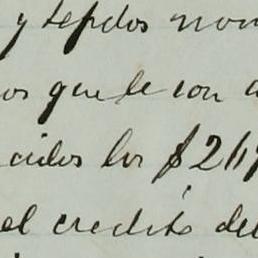 y tejidos nom
os que le son a
cidos los $ 269
el credito del